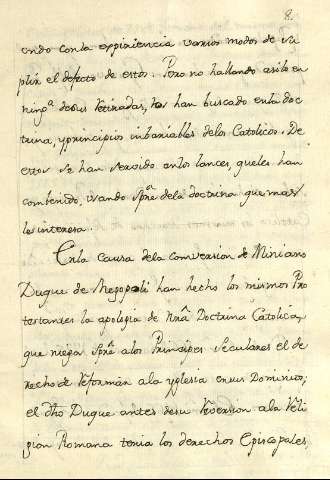 8.
endo con la expiriencia varios modos de su
plir el defecto de estos. Pero no hallando asilo en
ning.ª de sus Retiradas, los han buscado en la doc
trina, y principios inbariables de los Catolicos. De
estos se han servido en los lances, que les han
combenido, usando Spre de la doctrina que mas
les interesa.
En la causa de la comversion de Miniano
Duque de Megopoli han hecho los mismos Pro
testantes la apologia de Nrâ Doctrina Catolica,
que niega Spre a los Principes Seculares el de
recho de Reformar a la Yglesia en sus Dominios;
el dho Duque antes de su Reversion a la Reli
gion Romana tenia los derechos Episcopales,